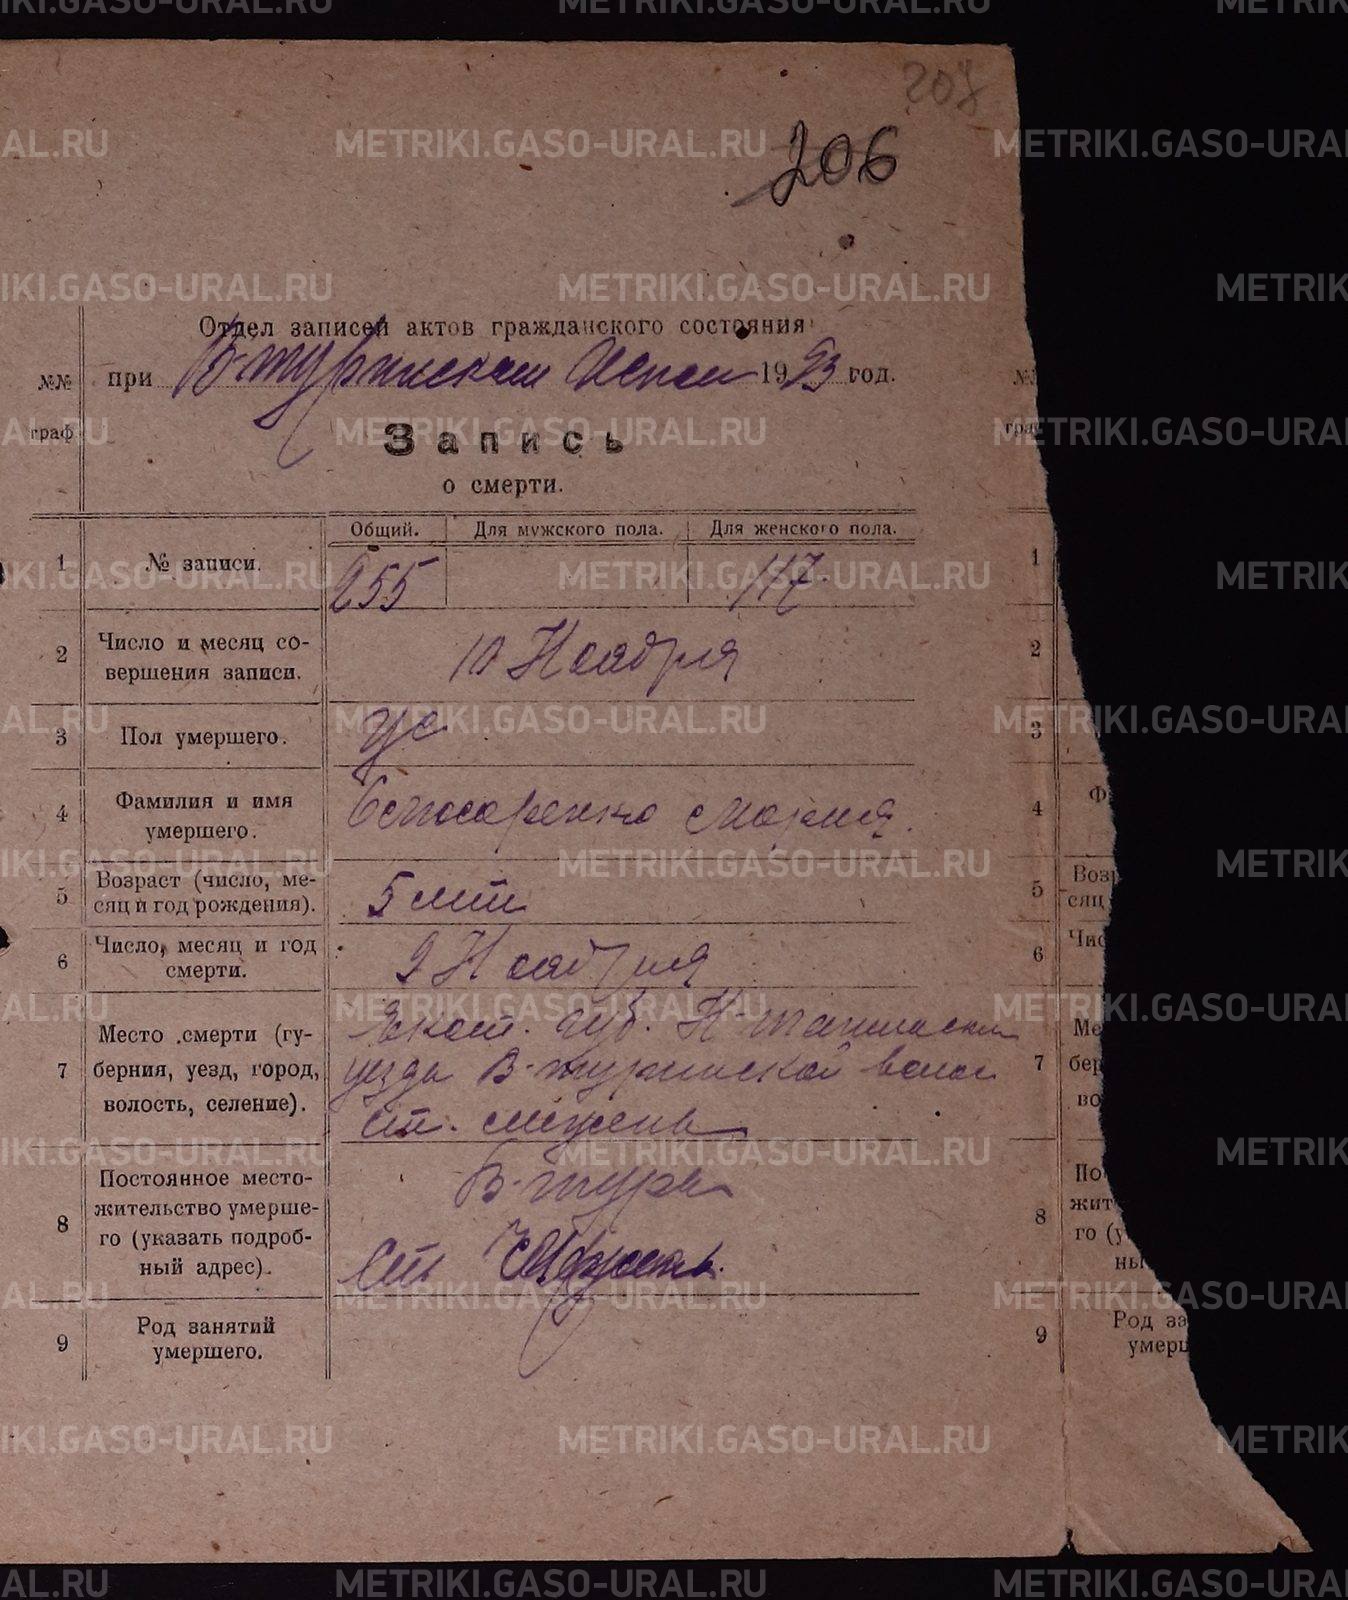 207
206
Отдел записей актов гражданского состояния
№№ при В-туринском Испол 1923 год.
граф
Запись
о смерти.
Общий. Для мужского пола. Для женского пола.
1 № записи. 255 117.
2 Число и месяц со-
вершения записи. 10 Ноября
3 Пол умершего. ж
4 Фамилия и имя
умершего. Мария.
5 Возраст (число, ме-
сяц и год рождения). 5 лет
6 Число, месяц и год
смерти. 9 Ноября
7 Место смерти (гу-
берния, уезд, город,
волость, селение).
Екат. губ. Н-тагильск
уезда В-туринской волос
ст.
8 Постоянное место-
жительство умерше-
го (указать подроб-
ный адрес).
В-тура
Ст
9 Род занятий
умершего.
№
граф
1
2
3
4 Ф
5 Воз
сяц
6 Чис
7 Ме
бер
во
8 По
жит
го (у
ны
9 Род за
умерш
METRIKI.GASO-URAL.RU